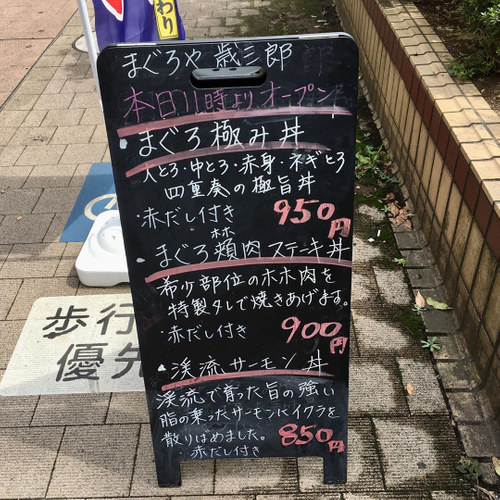 わり
まぐろや 歳三郎
本日11時よりオープン
まぐろ極み丼
大とろ・中とろ・赤身・ネギとろ
四重奏の極旨丼
・赤だし付き 950円
ホホ
まぐろ頬肉ステーキ丼
希少部位のホホ肉を
特製タレで焼きあげます。
・赤だし付き 900円
渓流サーモン丼
渓流で育った旨の強い
脂の乗ったサーモンにイクラを
散りばめました。 850円
・赤だし付き
歩行
優先